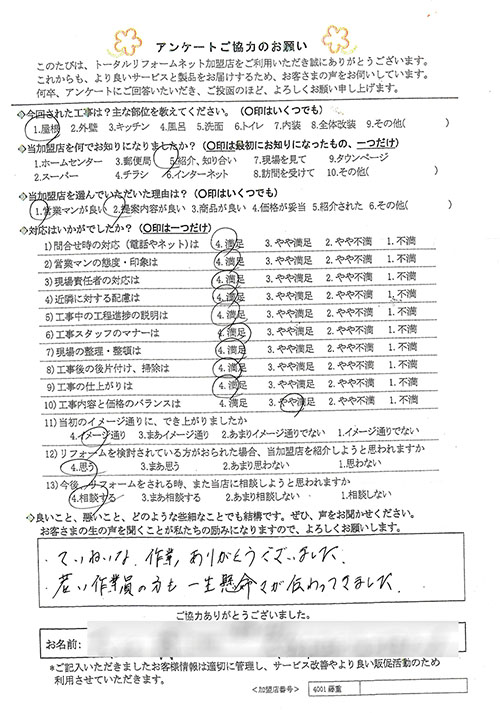 アンケートご協力のお願い
このたびは、トータルリフォームネット加盟店をご利用いただき誠にありがとうございます。
これからも、より良いサービスと製品をお届けするため、お客さまの声をお伺いしています。
何卒、アンケートにご回答いただき、ご投函のほど、よろしくお願い申し上げます。
◇今回された工事は?主な部位を教えてください。(〇印はいくつでも)
1.屋根 2.外壁 3.キッチン 4.風呂 5.洗面 6.トイレ 7.内装 8.全体改装 9.その他( )
◇当加盟店を何でお知りになりましたか?(〇印は最初にお知りになったもの、一つだけ)
1.ホームセンター 3.郵便局 5.紹介、知り合い 7.現場を見て 9.タウンページ
2.スーパー 4.チラシ 6.インターネット 8.訪問を受けて 10.その他( )
◇当加盟店を選んでいただいた理由は?(〇印はいくつでも)
1.営業マンが良い 2.提案内容が良い 3.商品が良い 4.価格が妥当 5.紹介された 6.その他( )
◇対応はいかがでしたか?(〇印は一つだけ)
1)問合せ時の対応(電話やネット)は 4.満足 3.やや満足 2.やや不満 1.不満
2)営業マンの態度・印象は 4.満足 3.やや満足 2.やや不満 1.不満
3)現場責任者の対応は 4.満足 3.やや満足 2.やや不満 1.不満
4)近隣に対する配慮は 4.満足 3.やや満足 2.やや不満 1.不満
5)工事中の工程進捗の説明は 4.満足 3.やや満足 2.やや不満 1.不満
6)工事スタッフのマナーは 4.満足 3.やや満足 2.やや不満 1.不満
7)現場の整理・整頓は 4.満足 3.やや満足 2.やや不満 1.不満
8)工事後の後片付け、掃除は 4.満足 3.やや満足 2.やや不満 1.不満
9)工事の仕上がりは 4.満足 3.やや満足 2.やや不満 1.不満
10)工事内容と価格のバランスは 4.満足 3.やや満足 2.やや不満 1.不満
11)当初のイメージ通りに、でき上がりましたか
4.イメージ通り 3.まあイメージ通り 2.あまりイメージ通りでない 1.イメージ通りでない
12)リフォームを検討されている方がおられた場合、当加盟店を紹介しようと思われますか
4.思う 3.まあ思う 2.あまり思わない 1.思わない
13)今後、リフォームをされる時、また当店に相談しようと思われますか
4.相談する 3.まあ相談する 2.あまり相談しない 1.相談しない
◇良いこと、悪いこと、どのような些細なことでも結構です。ぜひ、声をお聞かせください。
お客さまの生の声を聞くことが私たちの励みになりますので、よろしくお願いします。
・ていねいな作業、ありがとうございました。
・若い作業員の方も一生懸命さが伝わってきました。
ご協力ありがとうございました。
お名前:
*ご記入いただきましたお客様情報は適切に管理し、サービス改善やより良い販促活動のため
利用させていただきます。
<加盟店番号> 4001 藤重